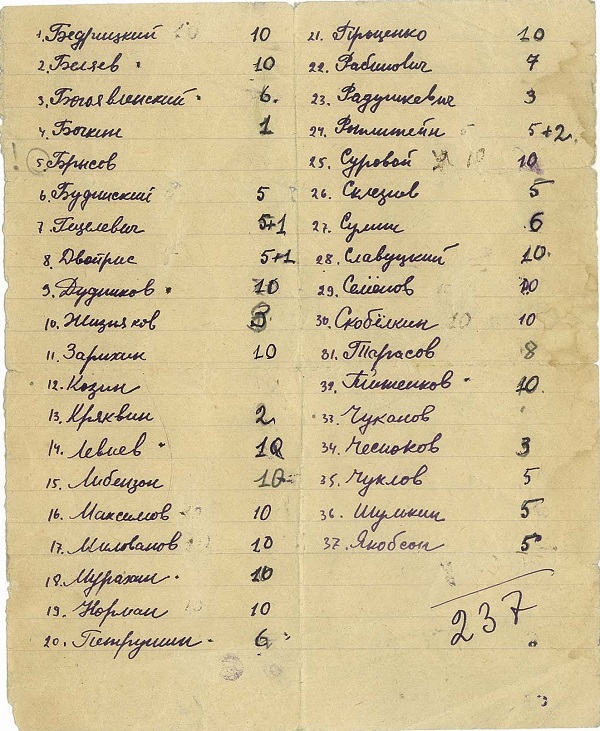 1. Бедрицкий 10
2. Беляев 10
3. Богоявленский 6.
4. Бочкин 1
! 5. Брысов
6. Будинский 5
7. Гецелевич 5+1
8. Двойрис 5+1
9. Дудников 10
10. Жизняков 3
11. Зарихин 10
12. Козин
13. Кряквин 2
14. Левиев 10
15. Либензон 10
16. Максимов 10
17. Милованов 10
18. Мурахин 10
19. Норман 10
20. Петрушин 6
21. Проценко 10
22. Рабинович 7
23. Радушкевич 3
24. Рылштейн 5+2
25. Суровой 10 10
26. Склезнов 5
27. Сулин 6
28. Славуцкий 10
29. Семёнов 10
30. Скобёлкин 10 10
31. Тарасов 8
32. 10
33. Чуканов
34. Чесноков 3
35. Чуклов 5
36. Шумкин 5
37. Якобсон 5
237